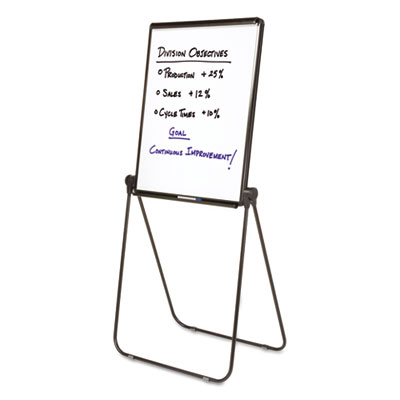 Division Objectives
o Production +25%
o Sales +12%
o Cycle Times +10%
Goal
Continuous Improvement!